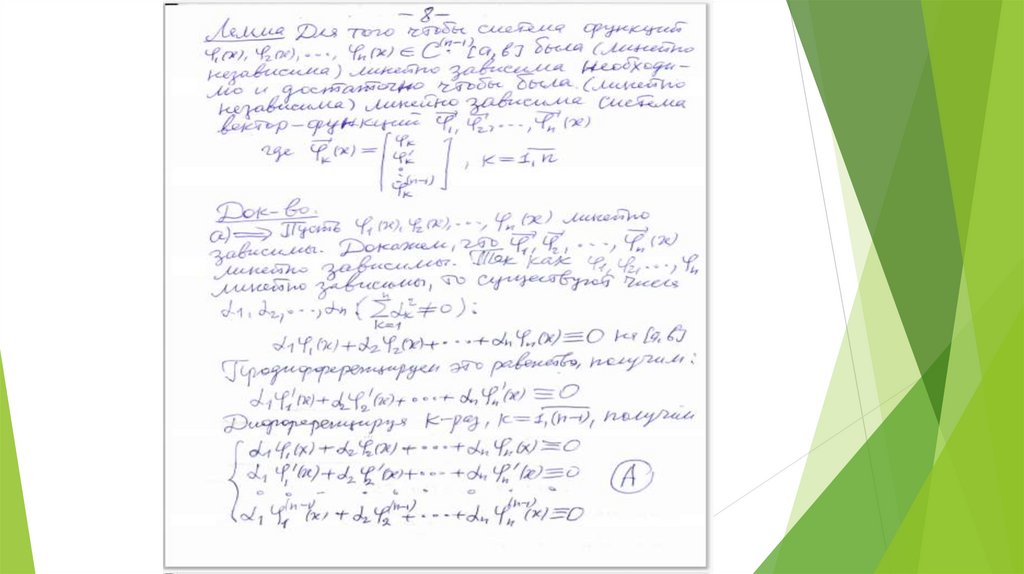 – 8 –
Лемма Для того чтобы система функций
φ₁(x), φ₂(x), ..., φₙ(x) ∈ C⁽ⁿ⁻¹⁾[a,b] была (линейно
независима) линейно зависима необходи-
мо и достаточно чтобы была (линейно
независима) линейно зависима система
вектор-функций φ⃗₁, φ⃗₂, ..., φ⃗ₙ(x)
где φ⃗ₖ(x) = [φₖ φₖ' ⋮ φₖ⁽ⁿ⁻¹⁾], k = 1,n̅
Док-во.
а) ⟹ Пусть φ₁(x), φ₂(x), ..., φₙ(x) линейно
зависимы. Докажем, что φ⃗₁, φ⃗₂, ..., φ⃗ₙ(x)
линейно зависимы. Так как φ₁, φ₂, ..., φₙ
линейно зависимы, то существуют числа
α₁, α₂, ..., αₙ (∑ₖ₌₁ⁿ αₖ² ≠ 0):
α₁φ₁(x) + α₂φ₂(x) + ... + αₙφₙ(x) ≡ 0 на [a,b]
Продифференцируем это равенство, получим:
α₁φ₁'(x) + α₂φ₂'(x) + ... + αₙφₙ'(x) ≡ 0
Дифференцируя k-раз, k = 1,(n-1), получим
{ α₁φ₁(x) + α₂φ₂(x) + ... + αₙφₙ(x) ≡ 0
α₁φ₁'(x) + α₂φ₂'(x) + ... + αₙφₙ'(x) ≡ 0 (A)
. . . . . . . . .
α₁φ₁⁽ⁿ⁻¹⁾(x) + α₂φ₂⁽ⁿ⁻¹⁾ + ... + αₙφₙ⁽ⁿ⁻¹⁾(x) ≡ 0